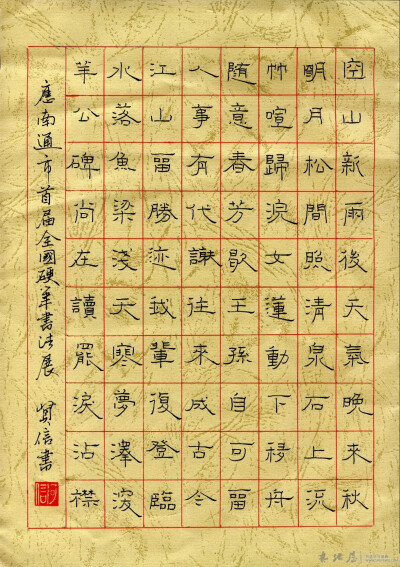 空山新雨後天氣晚來秋
明月松間照清泉石上流
竹喧歸浣女蓮動下移舟
随意春芳歇王孫自可留
人事有代謝往來成古今
江山留勝迹我輩復登臨
水落魚梁淺天寒夢澤深
羊公碑尚在讀罷淚沾襟
應南通市首届全國硬筆書法展 賢信書